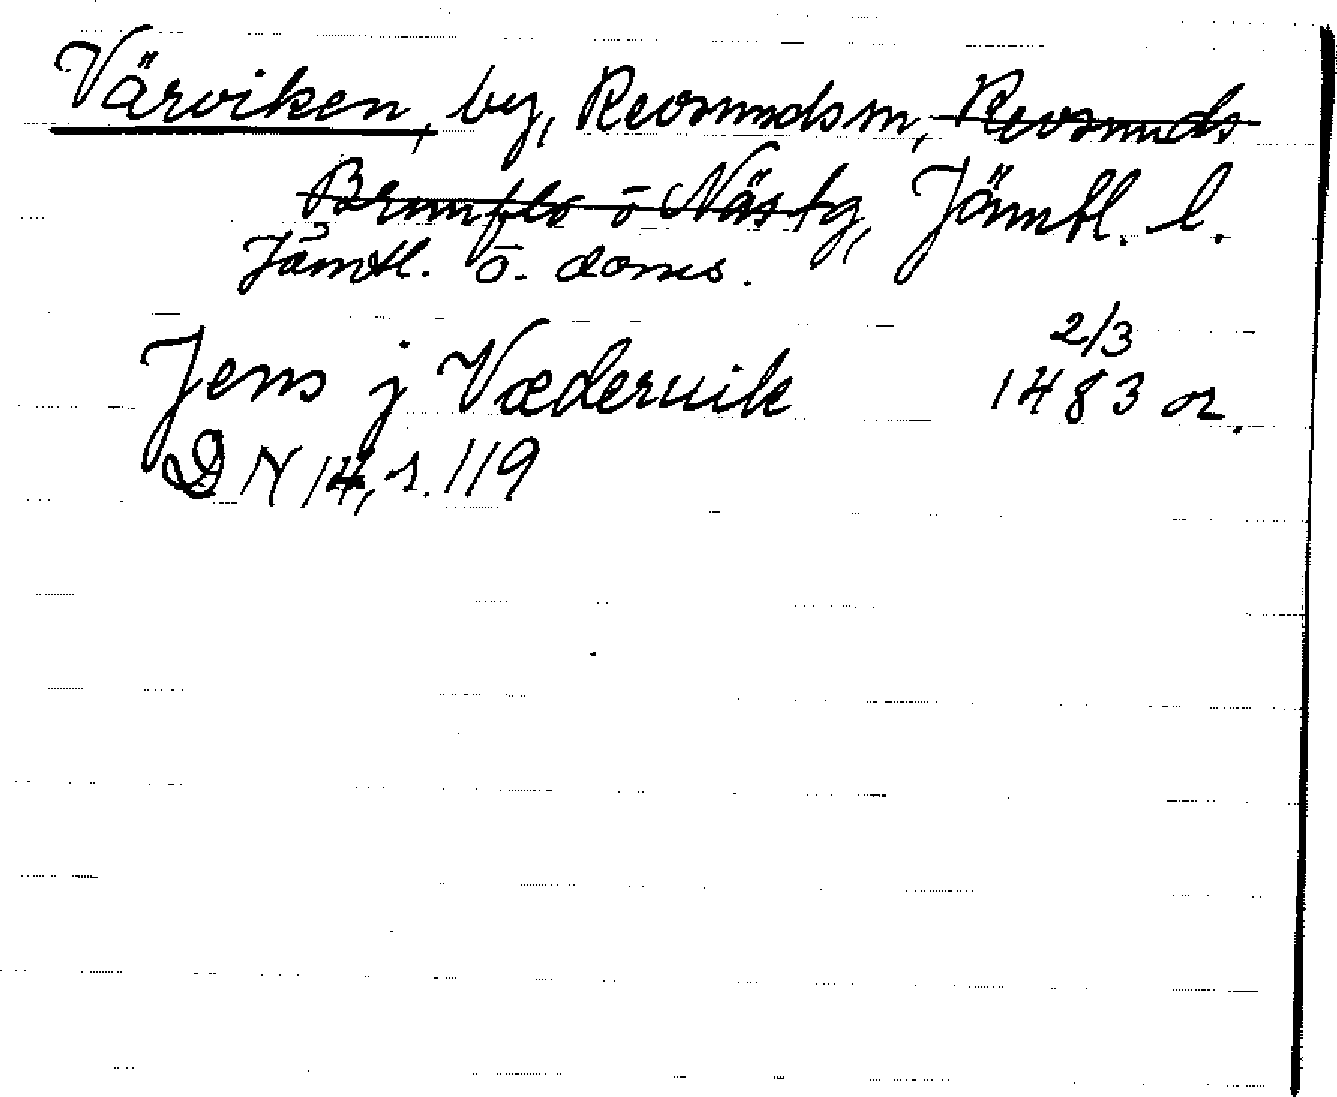 Värviken, by, Revsunds sn, Revsunds
Brunflo o Näs tg, Jämtl. l.
Jämtl. ö. doms.
Jens j Vædervik 2/3 1483 or.
DN 14, s. 119